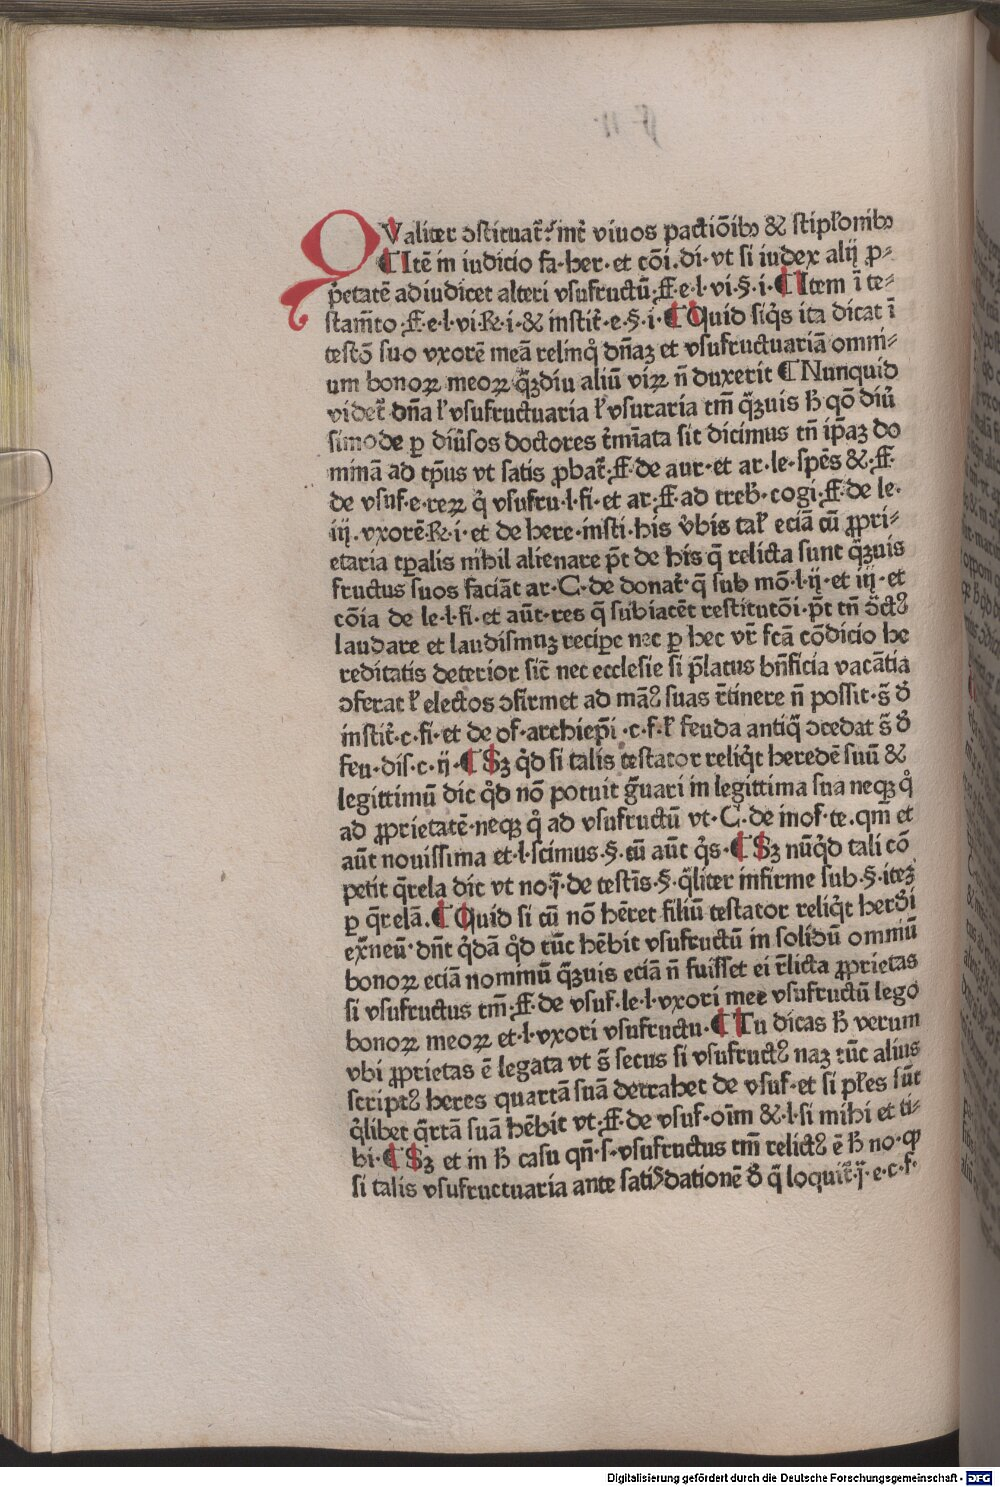 QValiter ɔstituat᷑.᷑ int᷑ viuos pactiõibꝰ & stipl'onibꝰ
¶Itẽ in iudicio fa·her·et cõi.di·vt si iudex alij ꝓ-
p̱etatẽ adiudicet alteri vsufructũ·ff·e·l·vi·§·i·¶Item ĩ te-
stam̃to·ff·e·l·vi·R̃·i·& instit᷑·e·§·i·¶Quid siq̉s ita dicat ĩ
testõ suo vxorẽ meã relinq̊ dñaꝫ et vsufructuariã omni-
um bonoꝝ meoꝝ q̃ꝫdiu aliũ viꝝ ñ duxerit ¶Nunquid
videt᷑ dña ł vsufructuaria ł vsuraria tm̃ q̃ꝫuis ħ qõ diũ
simode ꝑ diũsos doctores t᷑mĩata sit dicimus tñ ip̃aꝫ do
minã ad tp̃us vt satis ꝓbat᷑·ff·de aur·et ar·le·spẽs &·ff·
de vsuf·e·reꝝ q̉ vsufru·l·fi·et ar·ff·ad treb̃·cogi·ff·de le·
iij·vxorẽ·R̃·i·et de here·insti·his v̉bis tał eciã cũ ꝓpri-
etaria tꝑalis nihil alienare p̃t de his q̃ relicta sunt q̃ꝫuis
fructus suos faciãt ar·C·de donat᷑·q̃ sub mõ·l·ij·et iij·et
cõia de le·l·fi·et aũt·res q̃ subiacẽt restitutõi·p̃t tñ ɔ̃ctꝰ
laudare et laudismuꝫ reciꝑe nec ꝑ hec vr̃ fcã cõdicio he
reditatis deterior sic̃ nec ecclesie si p̃latus bñficia vacãtia
ɔferat ł electos ɔfirmet ad mãꝰ suas r̃tinere ñ possit·s̃ ð
instit᷑·c·fi·et de of·archiep̃i·c·f·ł feuda antiq̃ ɔcedat s̃ ð
feu·dis·c·ij·¶Sꝫ q̉d si talis testator reliq̉t heredẽ suũ &
legittimũ dic q̉d nõ potuit g̃uari in legittima sua neqꝫ q̊
ad ꝓprietatẽ·neqꝫ q̊ ad vsufructũ vt·C·de inof·te.qm̃ et
aũt nouissima et·l·scimus·§·cũ aũt q̉s·¶Sꝫ nũq̉d tali cõ
petit q̃rela dic vt no·j̃·de testĩs·§·q̃liter infirme sub·§·iteꝫ
ꝑ q̃relã.¶Quid si cũ nõ hẽret filiũ testator reliq̉t herðĩ
exñeũ·dñt q̉dã q̊d tũc hẽbit vsufructũ in solidũ omniũ
bonoꝝ eciã nominũ q̃ꝫuis eciã ñ fuisset ei r̃licta ꝓprietas
si vsufructus tm̃·ff·de vsuf·le·l·vxori mee vsufructũ lego
bonoꝝ meoꝝ et·l·vxori vsufructu·¶Tu dicas ħ verum
vbi ꝓprietas ẽ legata vt s̃ secus si vsufructꝰ naꝫ tũc alius
scriptꝰ heres quartã suã detrahet de vsuf·et si płes sũt
q̉libet q̃rtã suã hẽbit vt·ff·de vsuf·oĩm &·l·si mihi et ti-
bi·¶Sꝫ et in ħ casu qñ·s·vsufructus tm̃ relictꝰ ẽ ħ no·ꝙ
si talis vsufructuaria ante satisdationẽ ð q̃ loquit᷑·j̃·e·c·f·
Digitalisierung gefördert durch die Deutsche Forschungsgemeinschaft - DFG